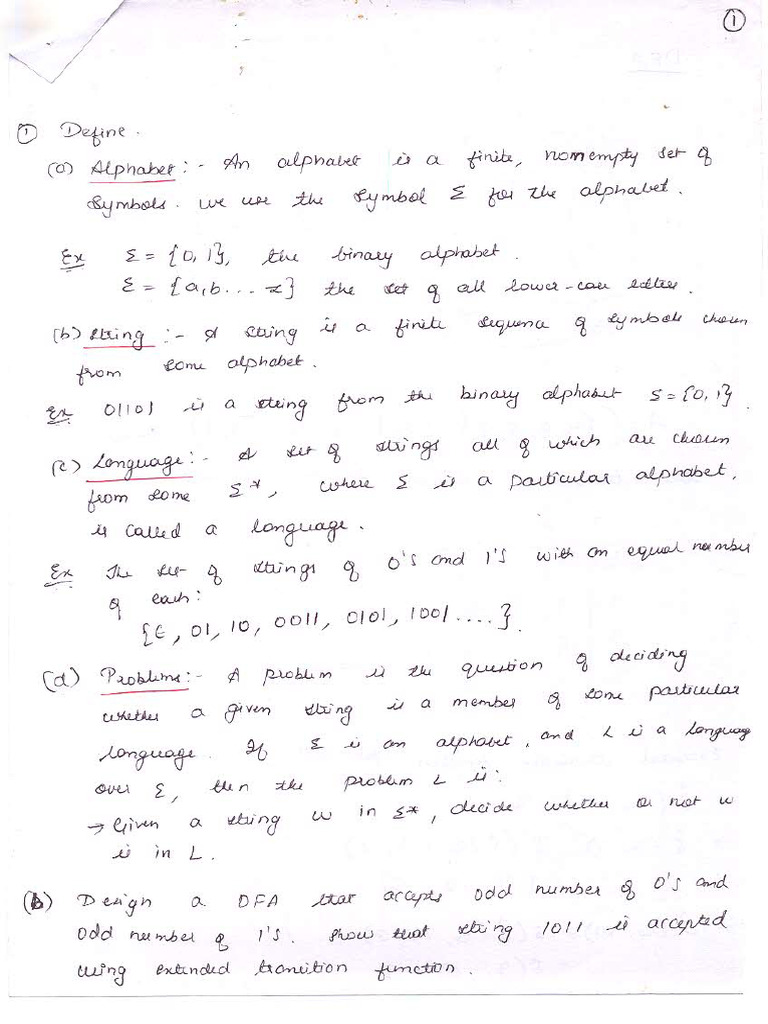 1
① Define.
(a) Alphabet :- An alphabet is a finite, nonempty set of
symbols. we use the symbol Σ for the alphabet.
Ex Σ = {0, 1}, the binary alphabet.
Σ = {a, b ... z} the set of all lower-case letters.
(b) string :- A string is a finite sequence of symbols chosen
from some alphabet.
Ex 01101 is a string from the binary alphabet S = {0, 1}.
(c) Language :- A set of strings all of which are chosen
from some Σ*, where Σ is a particular alphabet,
is called a language.
Ex The set of strings of 0's and 1's with an equal number
of each:
{ϵ, 01, 10, 0011, 0101, 1001 ....}.
(d) Problems :- A problem is the question of deciding
whether a given string is a member of some particular
language. If Σ is an alphabet, and L is a language
over Σ, then the problem L is:
→ Given a string w in Σ*, decide whether or not w
is in L.
(b) Design a DFA that accepts odd number of 0's and
odd number of 1's. Show that string 1011 is accepted
using extended transition function.